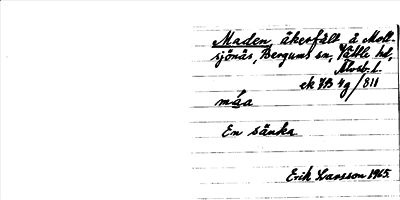 Maden, åkerfält å Moll-
sjönäs, Bergums sn, Vättle hd,
Älvsb. l.
ek 7B 4g/811
måa
En sänka
Erik Larsson 1965.